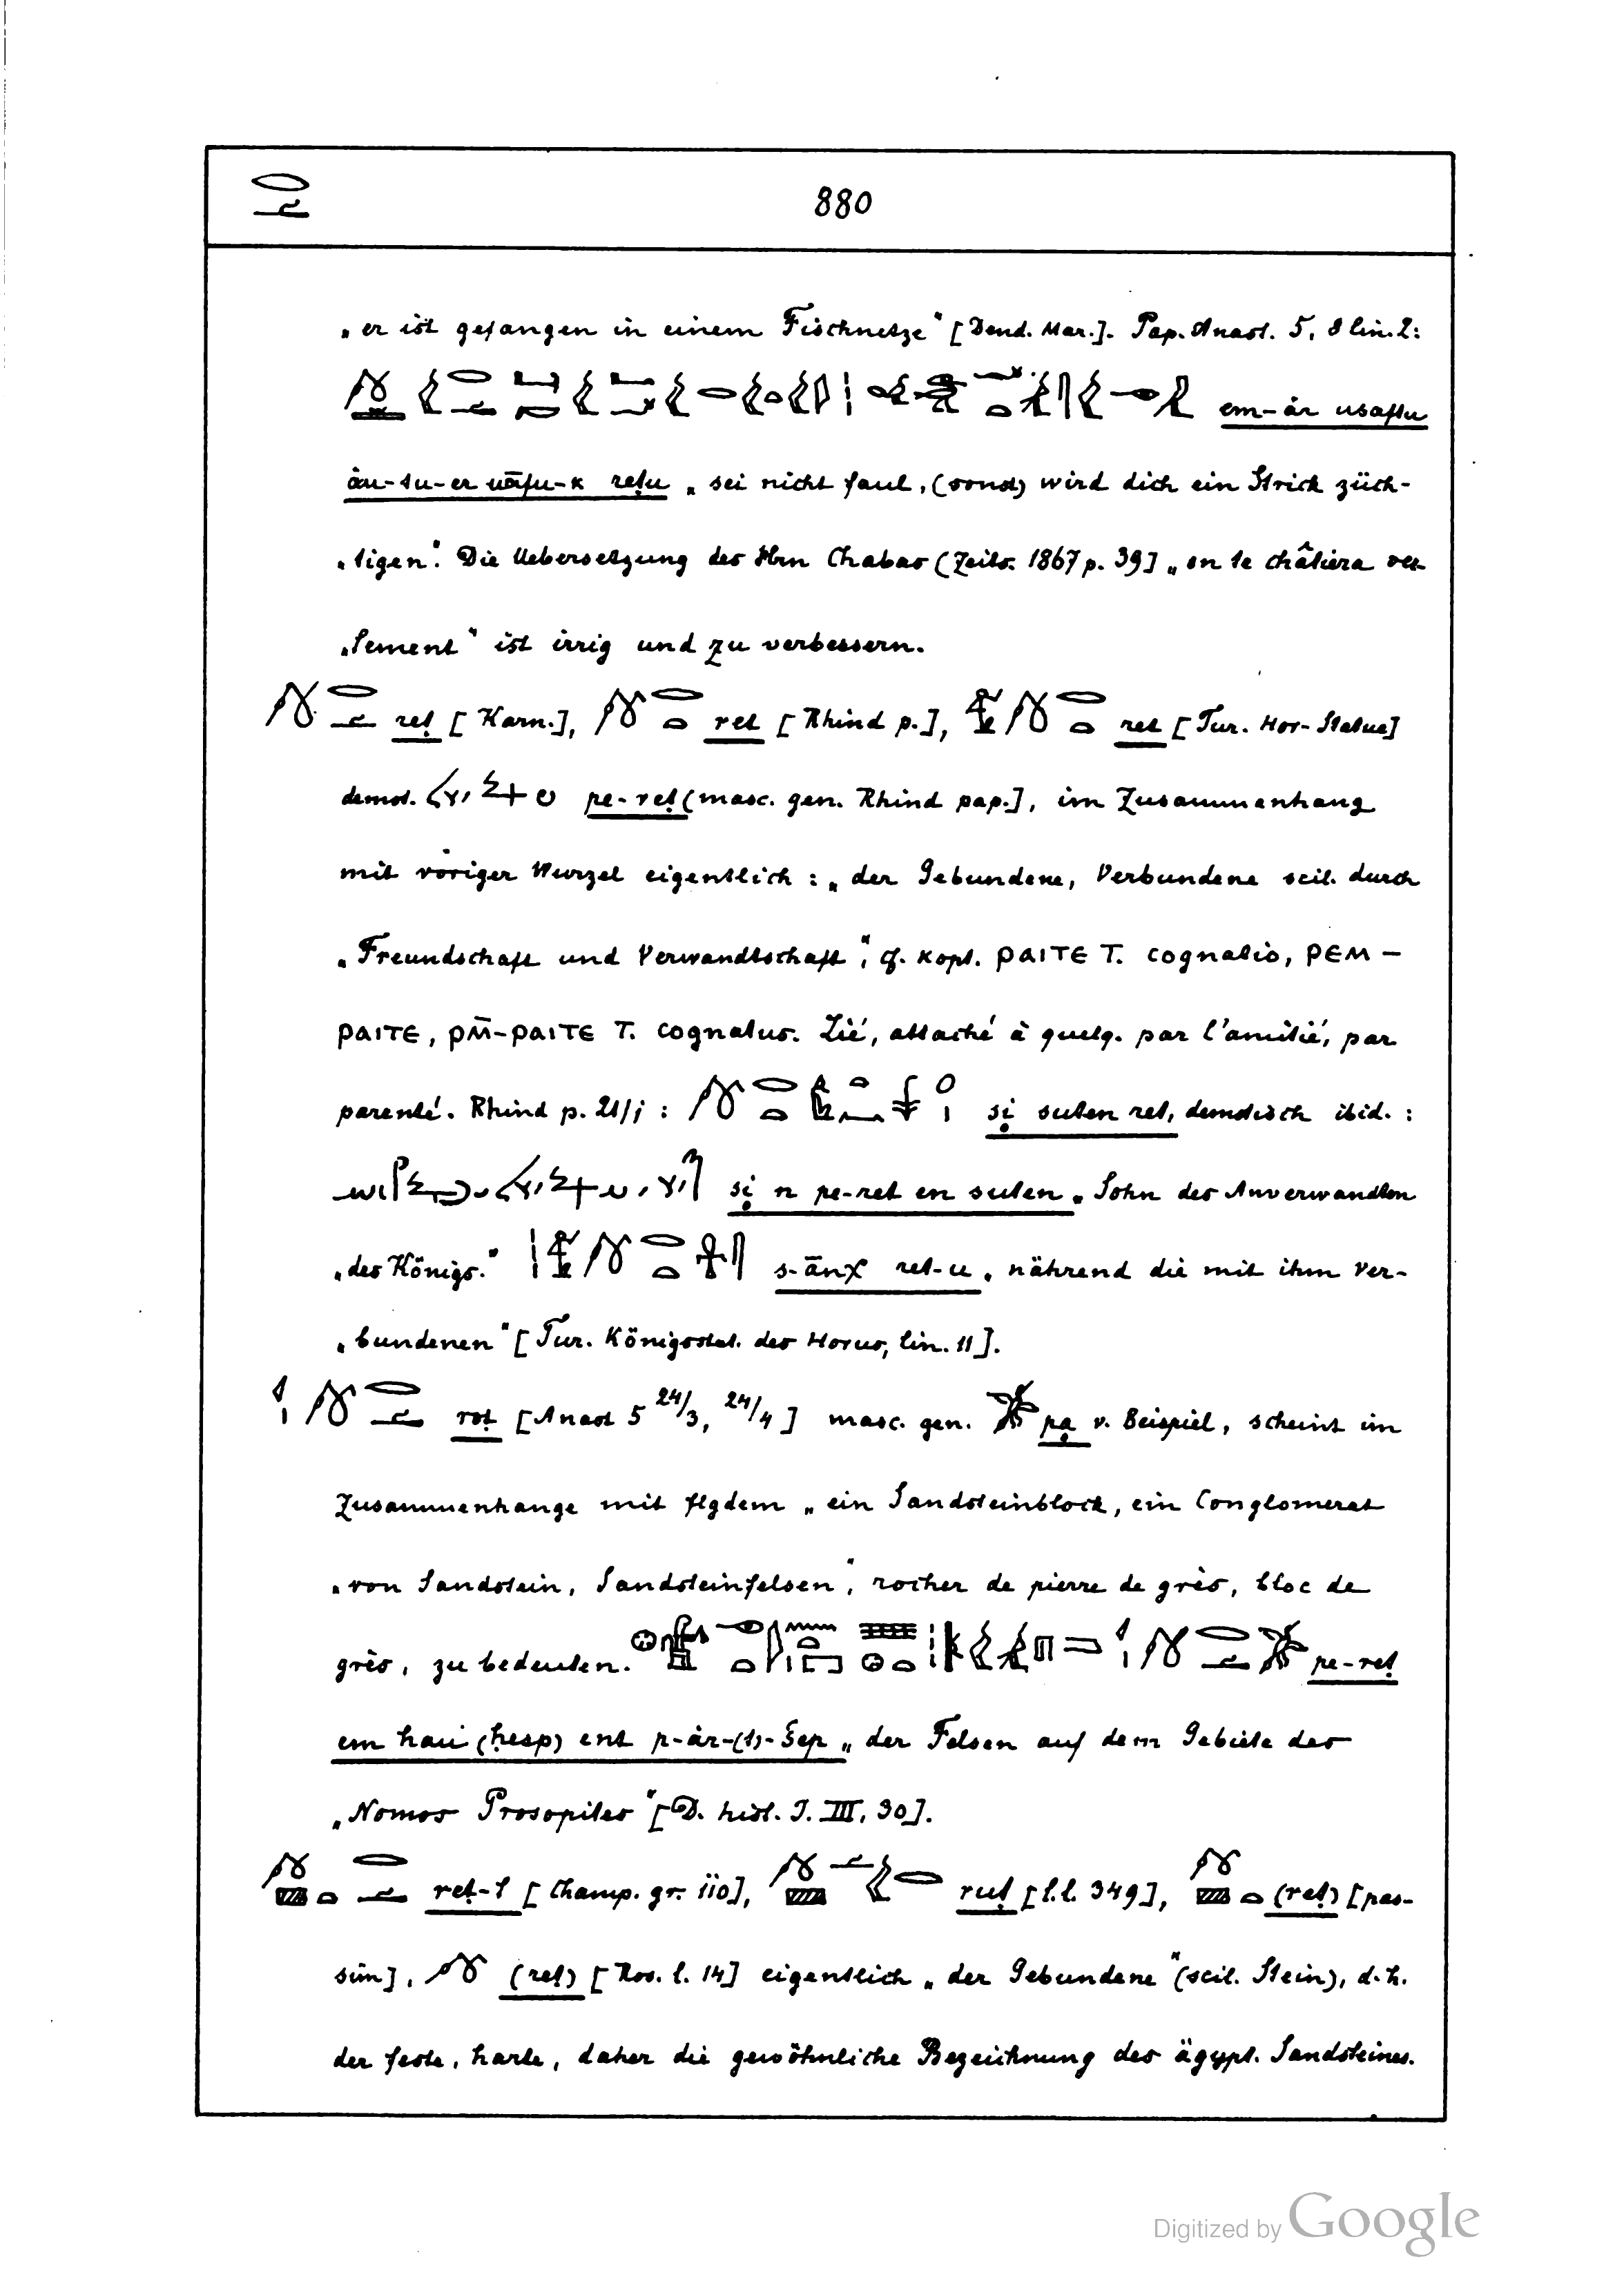 880
„er ist gefangen in einem Fischnetze“ [Dend. Mar.]. Pap. Anast. 5, 8 lin. 2:
em-ȧr usaftu
ȧu-tu-er uāfu-k reṭu „sei nicht faul, (sonst) wird dich ein Strick züch-
„tigen“. Die Uebersetzung des Hrn Chabas (Zeits. 1867 p. 39] „on te châtiera ver-
„tement“ ist irrig und zu verbessern.
reṭ [Karn.], ret [Rhind p.], ret [Tur. Hor-Statue]
demot. pe-reṭ (masc. gen. Rhind pap.], im Zusammenhang
mit voriger Wurzel eigentlich: „der Gebundene, Verbundene scil. durch
„Freundschaft und Verwandtschaft“, cf. kopt. ⲣⲁⲓⲧⲉ T. cognatio, ⲣⲉⲙ-
ⲣⲁⲓⲧⲉ, ⲣⲙ̄-ⲣⲁⲓⲧⲉ T. cognatus. Lié, attaché à quelq. par l'amitié, par
parenté. Rhind p. 21/j: si̤ suten ret, demotisch ibid.:
si̤ n pe-ret en suten „Sohn des Anverwandten
„des Königs.“ s-ānχ ret-u „nährend die mit ihm ver-
„bundenen“ [Tur. Königsstat. des Horus, lin. 11].
roṭ [Anast 5 24/3, 24/4] masc. gen. pa̤ v. Beispiel, scheint im
Zusammenhange mit flgdem „ein Sandsteinblock, ein Conglomerat
„von Sandstein, Sandsteinfelsen“, rocher de pierre de grès, bloc de
grès, zu bedeuten. pe-reṭ
em hau (ḥesp) ent p-ȧr-(t)-šep „der Felsen auf dem Gebiete des
„Nomos Prosopites“ [D. hist. I. III, 30].
reṭ-t [Champ. gr. 110], ruṭ [l.l. 349], (reṭ) [pas-
sim], (reṭ) [Ros. l. 14] eigentlich „der Gebundene“ (scil. Stein), d.h.
der feste, harte, daher die gewöhnliche Bezeichnung des ägypt. Sandsteines.
Digitized by Google